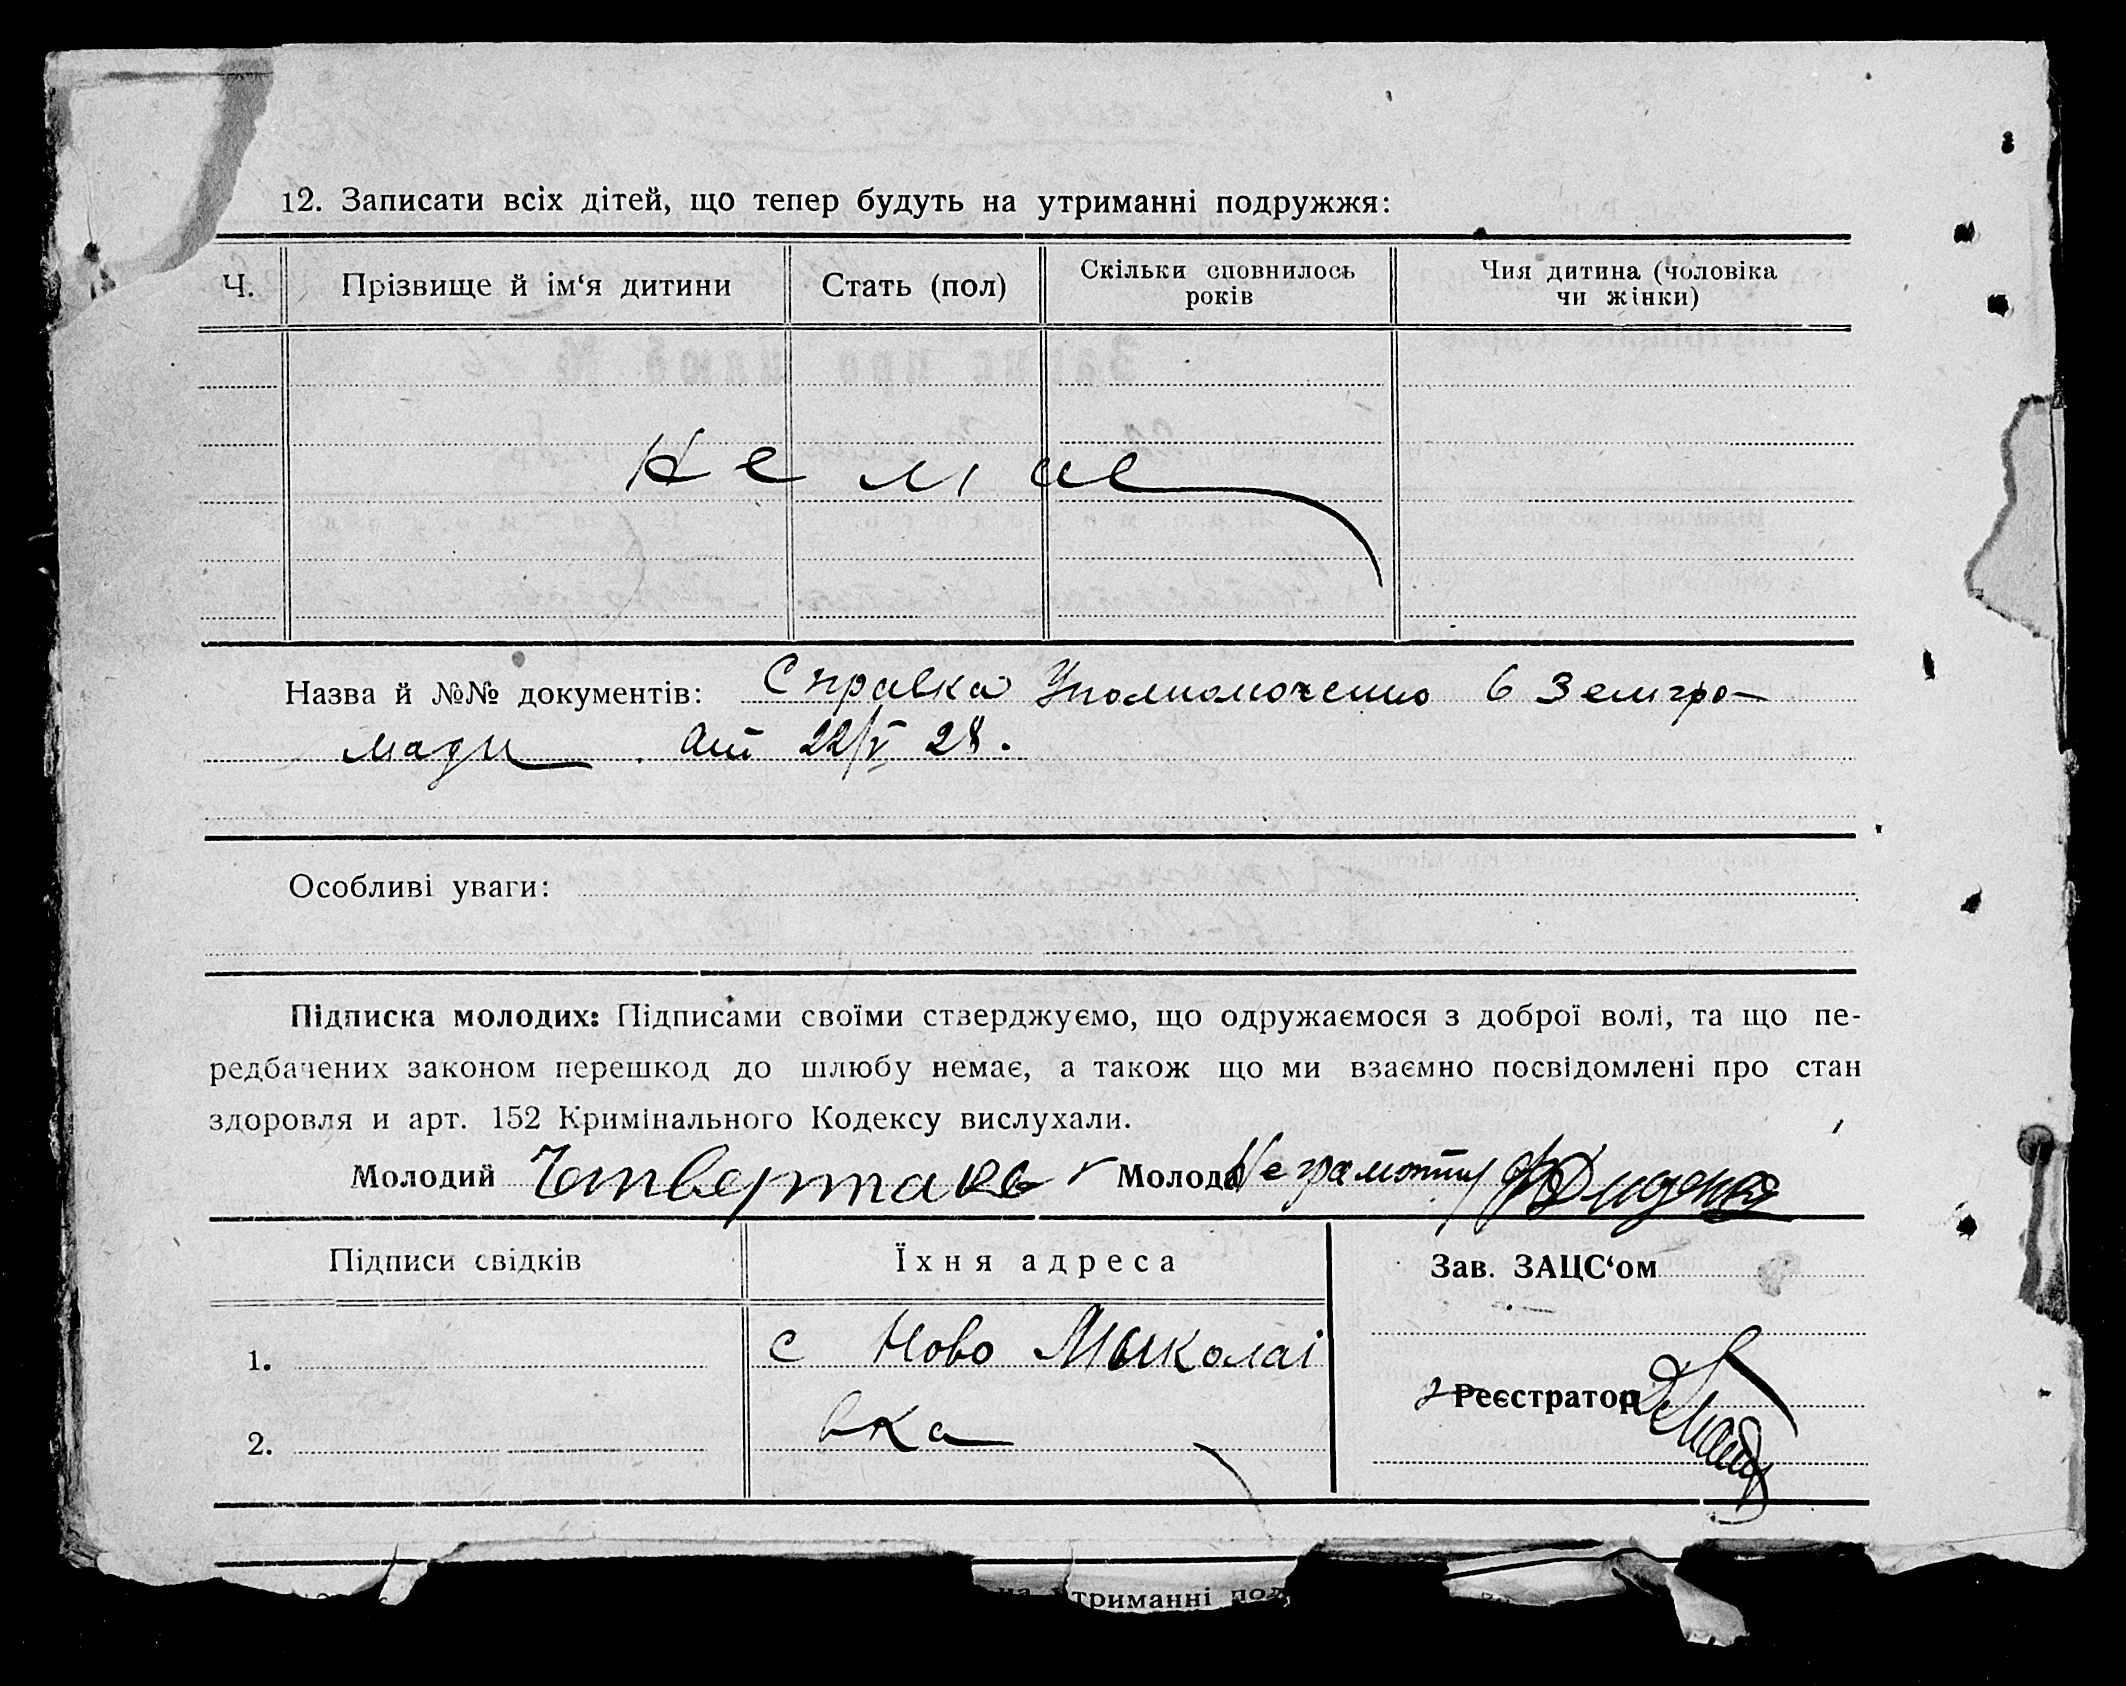 12. Записати всіх дітей, що тепер будуть на утриманні подружжя:
Ч. Прізвище й ім‘я дитини Стать (пол) Скільки сповнилось років Чия дитина (чоловіка чи жінки)
не має
Назва й №№ документів: Справка Уполномоченно 6 Земгро-
мади. від 22/V 28.
Особливі уваги:
Підписка молодих: Підписами своїми стверджуємо, що одружаємося з доброї волі, та що пе-
редбачених законом перешкод до шлюбу немає, а також що ми взаємно посвідомлені про стан
здоровля и арт. 152 Кримінального Кодексу вислухали.
Молодий Четвертако Молода Неграмотну
Підписи свідків Їхня адреса Зав. ЗАЦС‘ом
1. с Ново Мыколаі
Реєстратор
2. вка
на утриманні под